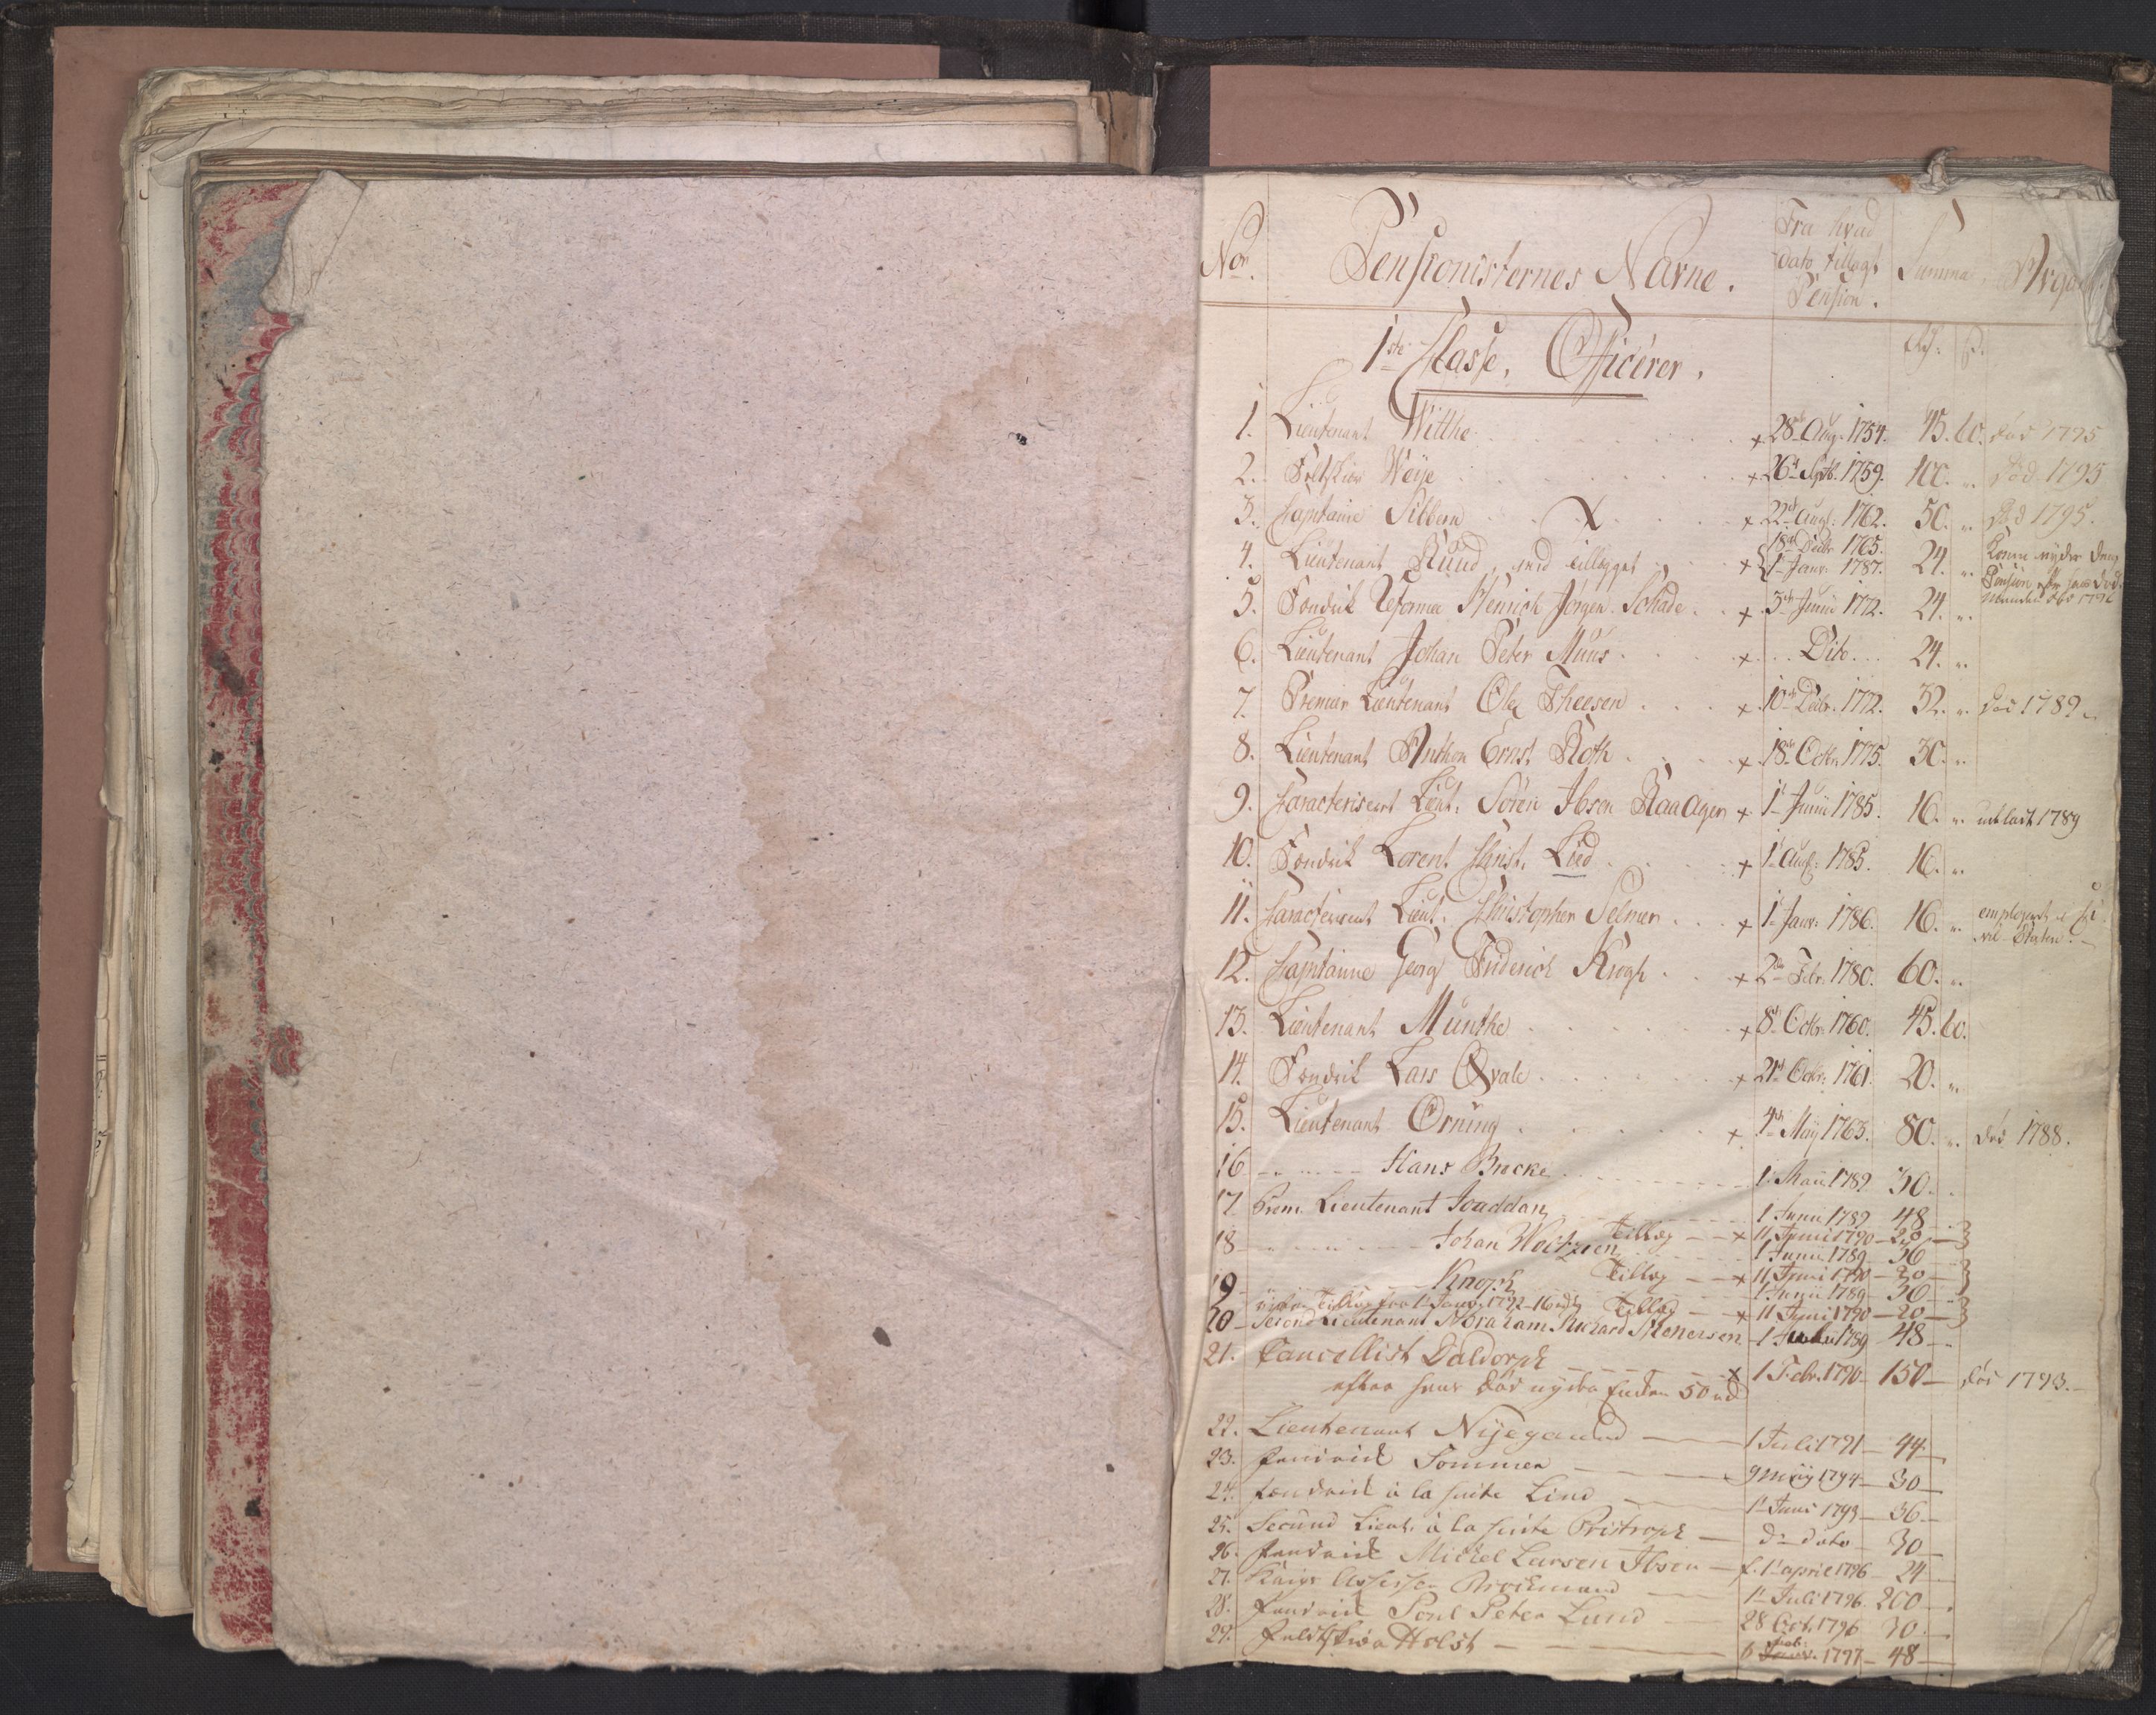 No. Pensionisternes Navne. Fra hvad dato tillagt Pension. Summa
1ste Classe, Officerer. Rd: ß.
1. Lieutenant Witthe + 28de Aug. 1754. 45. 60. død 1795
2. Feltskiær Weije + 26de Septb. 1759. 100. „ død 1795
3. Capitaine Sibbern + 22de Augs: 1762. 50. „ død 1795.
4. Lieutenant Ruud, med tillægget + 18de Decbr 1765. 1te Janv: 1787. 24. „ Konen nyder den Pension efter hans død.
5. Fendrik Reformee Henrich Jørgen Schade + 3de Junii 1772. 24. „
6. Lieutenant Johan Peter Muus + Dito 24. „
7. Premier Lieutenant Ole Theesen + 10de Decbr. 1772. 32. „ død 1789
8. Lieutenant Anthon Ernst Roth + 18de Octbr. 1775. 30. „
9. Caracteriseret Lieut: Sören Ibsen Raa Ager + 1te Junii 1785. 16. „ udladt 1789
10. Fendrik Lorent Christ. Lied + 1te Augs: 1785. 16. „
11. Caracteriseret Lieut. Christopher Selmer + 1te Janv: 1786. 16. „ employeret i Civil-Etaten.
12. Capitaine Georg Friderich Krogh + 2den Febr. 1780. 60. „
13. Lieutenant Munthe + 8de Octbr. 1760. 45. 60.
14. Fendrik Lars Qvale + 21de Octbr: 1761. 20. „
15. Lieutenant Örning + 4de Maij 1763. 80. „ død 1788.
16 — Hans Brocke 1. Maii 1789 30.
17. Prem. Lieutenant Jouddan 1 Junii 1789 48
Tillæg — + 11 Junii 1790 — 20 —
18 — Johan Woetzien 1 Junii 1789 36
Tillæg — + 11 Junii 1790 — 20 —
19 — Knoph 1 Junii 1789 36
Tillæg fra 1 Janv. 1792 — 16 rd Tillæg — + 11 Junii 1790 — 20 —
20 — Second Lieutenant Abraham Richard Stenersen — 1 Juli 1789 48 —
21. Cancellist Daldorph + 1 Febr. 1790 — 150 — død 1793.
efter hans død nyder Enken 50 rd
22. Lieutenant Nijegaard — 1 Juli 1791 — 44 —
23. Fendrick Sommer — 9 Maij 1794 — 30 —
24. Fendrick à la suite Lind — 1te Juni 1793 — 36 —
25. Secund Lieut. à la suite Pristroph — do dato — 30
26. Fendrick Michel Larsen Ibsen — f. 1te april 1796 — 24 —
27. Krigs Assessor Brockmand — 1te Juli 1796. 200 —
28. Fendrick Poul Peter Lund — 28 Oct. 1796 30 —
29. Feldtskiær Holst — 6 Feb: 1797 — 48 —